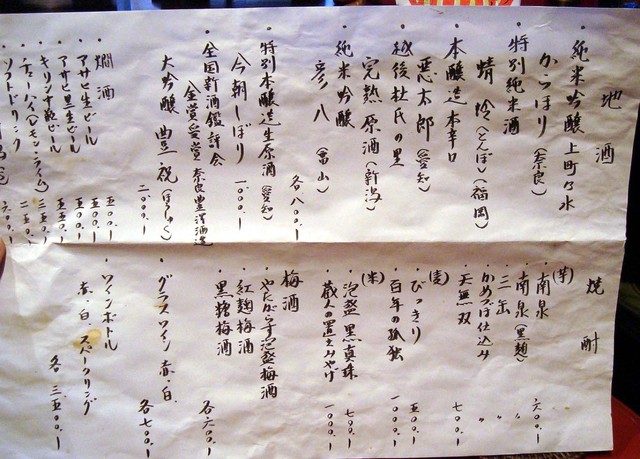 地酒
・純米吟醸 上町乃水
からほり(奈良)
・特別純米酒
蜻蛉(とんぼ)(福岡)
・本醸造本辛口
悪太郎(愛知)
・越後杜氏の里
完熟原酒(新潟)
・純米吟醸
彦八(富山)
各八〇〇.ー
・特別本醸造生原酒(愛知)
今朝しぼり 一〇〇〇.ー
・全国新酒鑑評会
金賞受賞 奈良豊澤酒造
大吟醸 豊祝(ほうしゅく)
二〇〇〇.ー
燗酒
・アサヒ生ビール 五〇〇.ー
・アサヒ黒生ビール 五五〇.ー
・キリン中瓶ビール 五五〇.ー
・チューハイ(レモン・ライム)
・ソフトドリンク
焼酎
(芋)
・南泉 六〇〇.ー
・南泉(黒麹) 〃
・三岳 〃
かめつぼ仕込み
・天無双 七〇〇.ー
(麦)
・びっきり 五〇〇.ー
・百年の孤独 一〇〇〇.ー
(米)
・泡盛 黒真珠 七〇〇.ー
・蔵人の置きみやげ 一〇〇〇.ー
梅酒
・やたがらす泡盛梅酒
・紅麹梅酒
・黒糖梅酒
各六〇〇.ー
・グラスワイン 赤・白
各七〇〇.ー
・ワインボトル
赤・白 スパークリング
各三五〇〇.ー